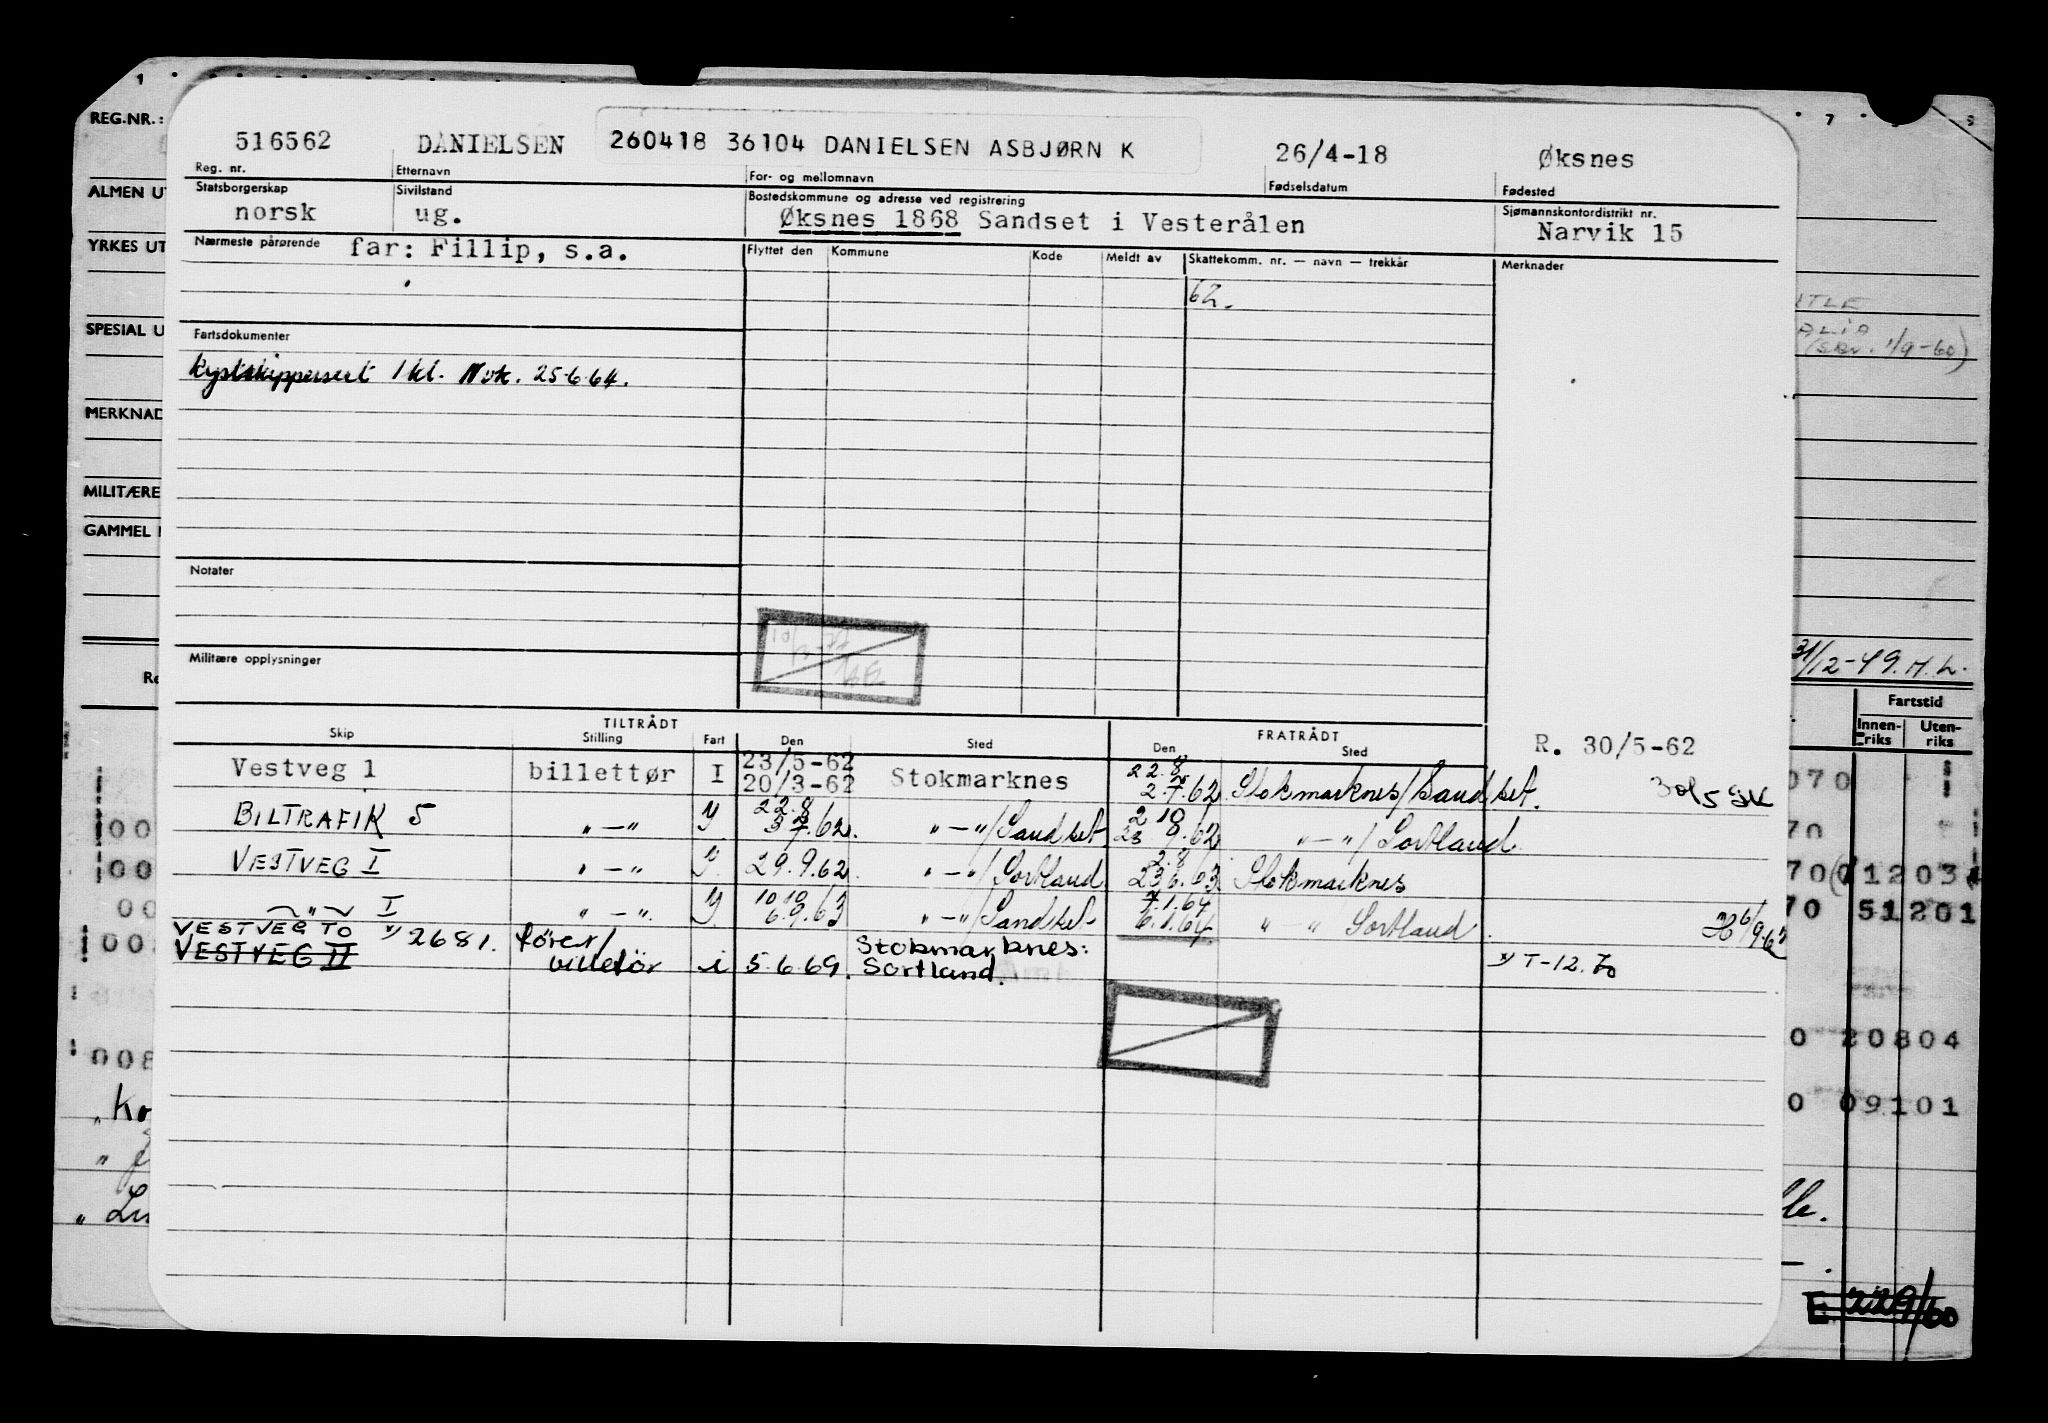 REG.NR.:
516562 DANIELSEN 260418 36104 DANIELSEN ASBJØRN K 26/4-18 Øksnes
Reg. nr. Etternavn For- og mellomnavn Fødselsdatum Fødested
ALMEN UT
Statsborgerskap Sivilstand Bostedskommune og adresse ved registrering Sjømannskontordistrikt nr.
norsk ug. Øksnes 1868 Sandset i Vesterålen Narvik 15
YRKES UT
Nærmeste pårørende far: Fillip, s.a. Flyttet den Kommune Kode Meldt av Skattekomm. nr. — navn — trekkår Merknader
62.
SPESIAL U
(skr. 1/9-60)
Fartsdokumenter
Kystskippersert 1 kl. Nvk. 25.6.64.
MERKNAD
MILITÆRE
GAMMEL
Notater
Militære opplysninger
31/12-49. H. L.
Fartstid
Innen-riks Uten-riks
TILTRÅDT FRATRÅDT
Skip Stilling Fart Den Sted Den Sted
R. 30/5-62
Vestveg 1 billettør I 23/5-62 20/3-62 Stokmarknes 22.8 2.7.62 Stokmarknes/Sandset. 30/5 GK
BILTRAFIK 5 „—„ 22.8 3.7.62. „—„/Sandset 2 10 23 9.62 „—„/Sortland
VESTVEG I „—„ 29.9.62. „—„/Sortland 2.8 23.6.63 Stokmarknes
„ I „—„. 10 10 6.9.63 „—„/Sandset 7.1.64 6.1.64. „—„ Sortland.
VESTVEG TO x) 2681. fører/ Stokmarknes:
VESTVEG II billetør i 5.6.69. Sortland. x) T-12.70
070
70
70 1203
70 51201
0 20804
0 09101
008
E 229/60